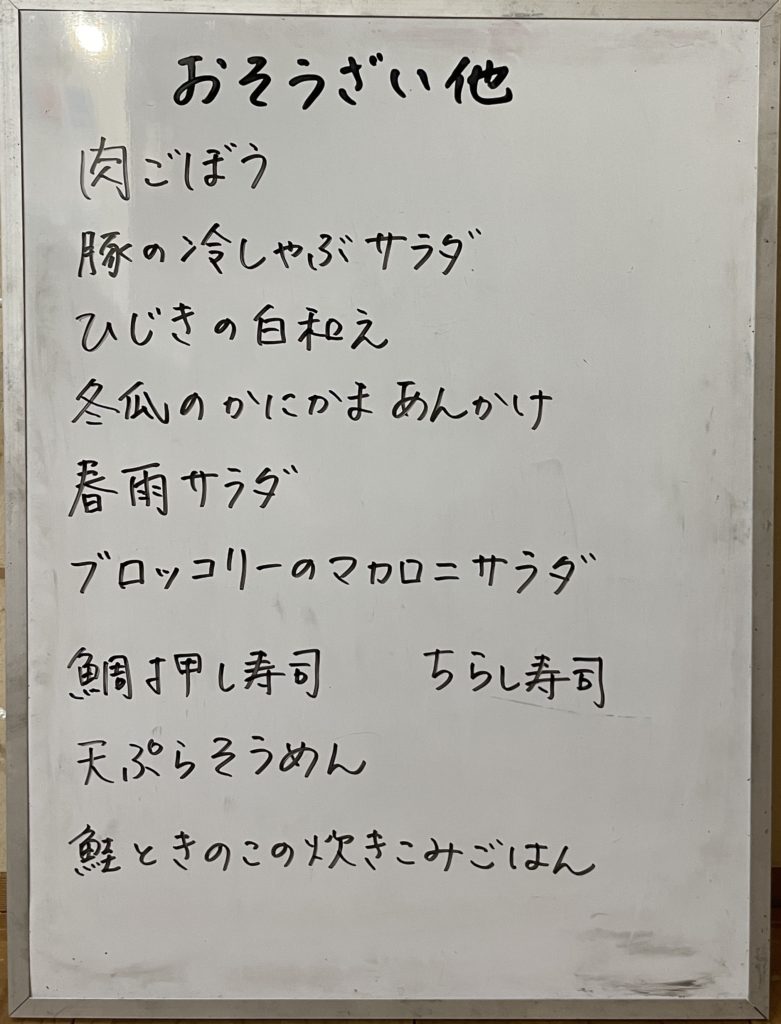 おそうざい他
肉ごぼう
豚の冷しゃぶサラダ
ひじきの白和え
冬瓜のかにかまあんかけ
春雨サラダ
ブロッコリーのマカロニサラダ
鯛押し寿司　ちらし寿司
天ぷらそうめん
鮭ときのこの炊きこみごはん